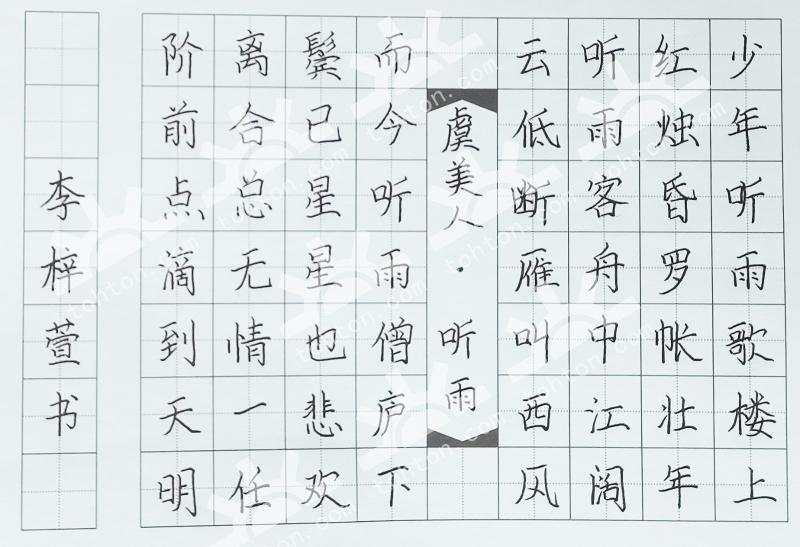 少年听雨歌楼上
红烛昏罗帐壮年
听雨客舟中江阔
云低断雁叫西风
虞美人·听雨
而今听雨僧庐下
鬓已星星也悲欢
离合总无情一任
阶前点滴到天明
李梓萱书
tohton.com
tohton.com
tohton.com
tohton.com
tohton.com
tohton.com